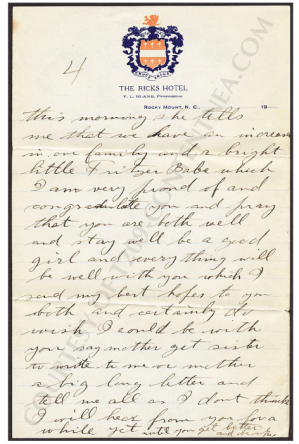 4
THE RICKS HOTEL
ROCKY MOUNT, N. C. 19
this morning she tells
me that we have an increase
in our family and a bright
little Fritzer Babe which
I am very proud of and
congradulate you and pray
that you are both well
and stay well be a good
girl and everything will
be well with you which I
send my best hopes to you
both and certainly do
wish I could be with
you say mother get sister
to write to me or mother
a big long letter and
tell me all as I dont think
I will hear from you for a
while yet until you get better
and